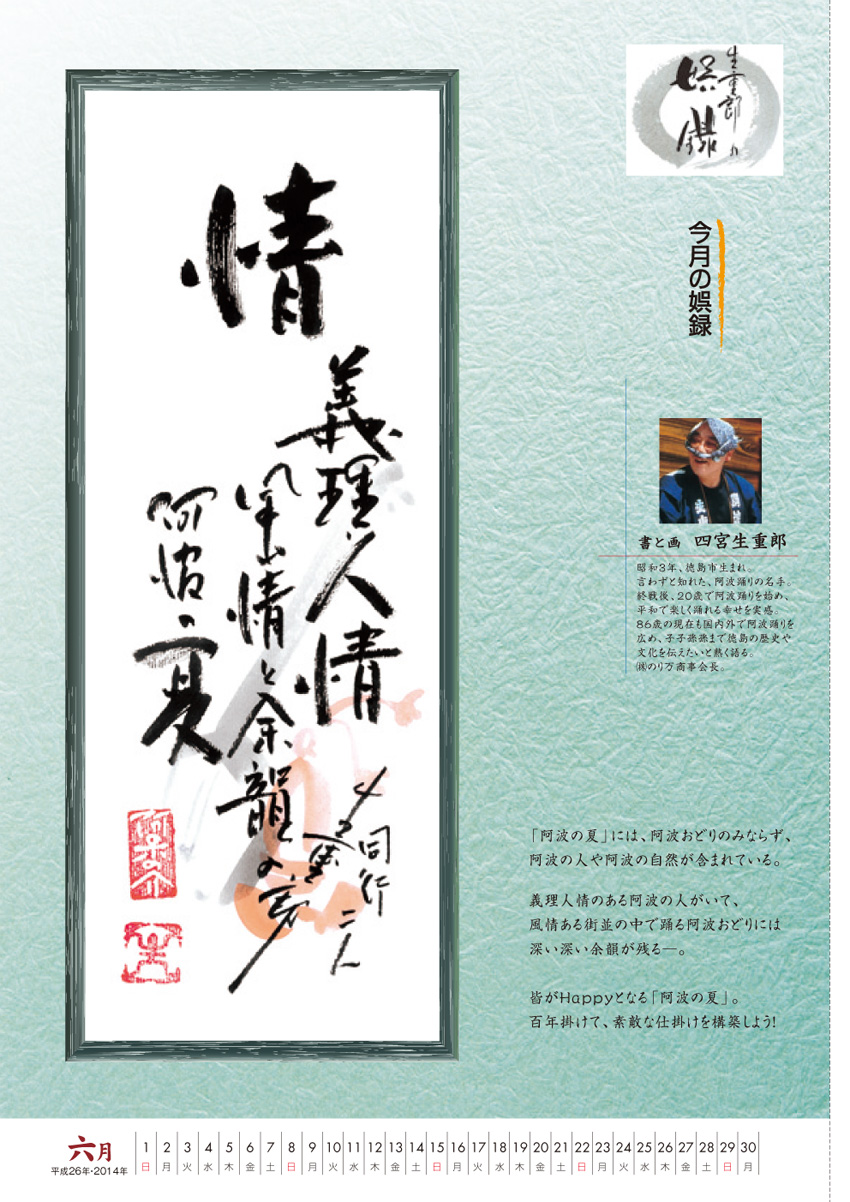 生重郎の
娯録
今月の娯録
情
義理人情
風情と余韻の
阿波の夏
同行二人
書と画 四宮生重郎
昭和3年、徳島市生まれ。
言わずと知れた、阿波踊りの名手。
終戦後、20歳で阿波踊りを始め、
平和で楽しく踊れる幸せを実感。
86歳の現在も国内外で阿波踊りを
広め、子子孫孫まで徳島の歴史や
文化を伝えたいと熱く語る。
㈱のり万商事会長。
「阿波の夏」には、阿波おどりのみならず、
阿波の人や阿波の自然が含まれている。
義理人情のある阿波の人がいて、
風情ある街並の中で踊る阿波おどりには
深い深い余韻が残る―。
皆がHappyとなる「阿波の夏」。
百年掛けて、素敵な仕掛けを構築しよう!
六月
平成26年・2014年
1 2 3 4 5 6 7 8 9 10 11 12 13 14 15 16 17 18 19 20 21 22 23 24 25 26 27 28 29 30
日 月 火 水 木 金 土 日 月 火 水 木 金 土 日 月 火 水 木 金 土 日 月 火 水 木 金 土 日 月